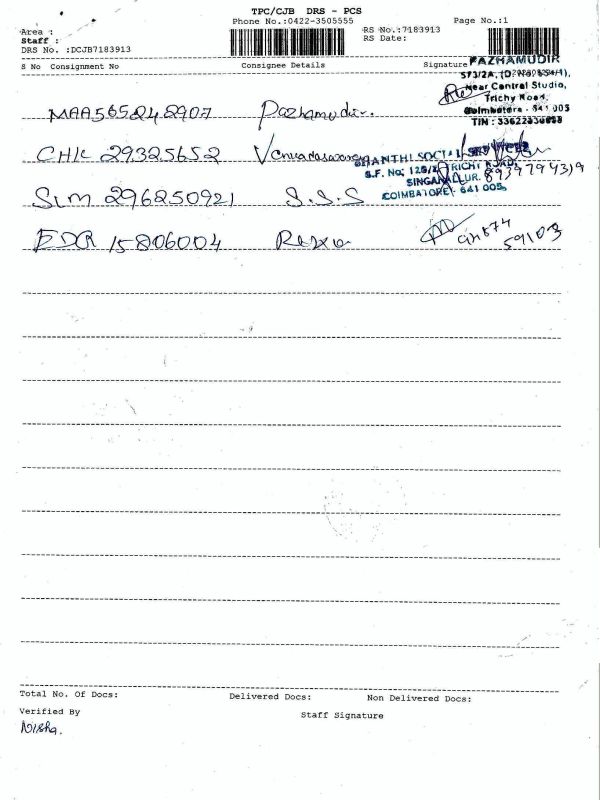 TPC/CJB DRS - PCS
Phone No.:0422-3505555 Page No.:1
Area :
Staff :
DRS No. :DCJB7183913
RS No.:7183913
RS Date:
S No Consignment No Consignee Details Signature
PAZHAMUDIR
Near Central Studio,
Trichy Road,
Coimbatore - 641 005
MAA565242907 Pazhamudir.
CHK 29325652
SHANTHI SOCIAL SERVICES
TRICHY ROAD,
SINGANALLUR.
COIMBATORE - 641 005.
8939794319
SLM 296250921 S.S.S
EDR 15806004
59103
Total No. Of Docs: Delivered Docs: Non Delivered Docs:
Verified By Staff Signature
Nisha.